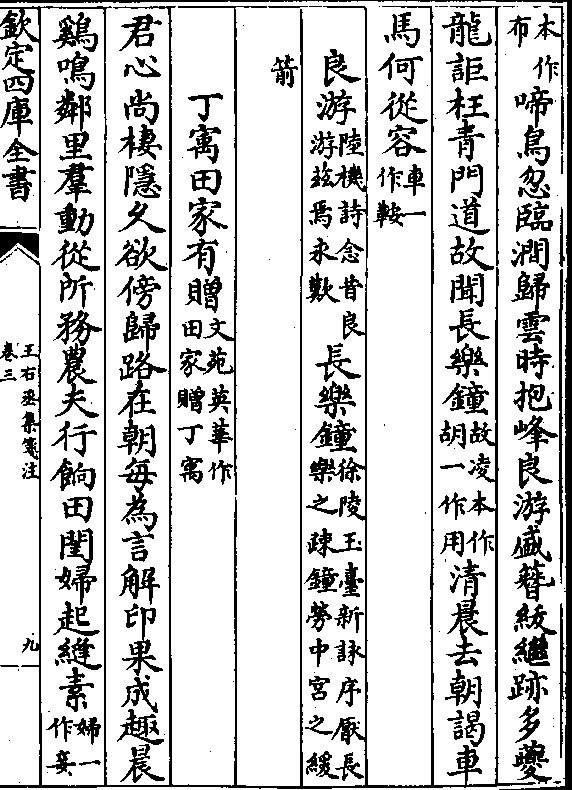 本作布啼鳥忽臨澗歸雲時抱峰良游盛簪紱繼跡多夔
龍詎枉青門道故聞長樂鐘故凌本作胡一作用清晨去朝謁車
馬何從容車一作鞍
良游陸機詩念昔良游茲焉永歎長樂鐘徐陵玉臺新詠序厭長樂之疎鐘勞中宮之緩
箭
丁寓田家有贈文苑英華作田家贈丁寓
君心尚棲隱久欲傍歸路在朝每為言解印果成趣晨
鷄鳴鄰里羣動從所務農夫行餉田閨婦起縫素婦一作妾
欽定四庫全書
王右丞集箋注
卷三
九